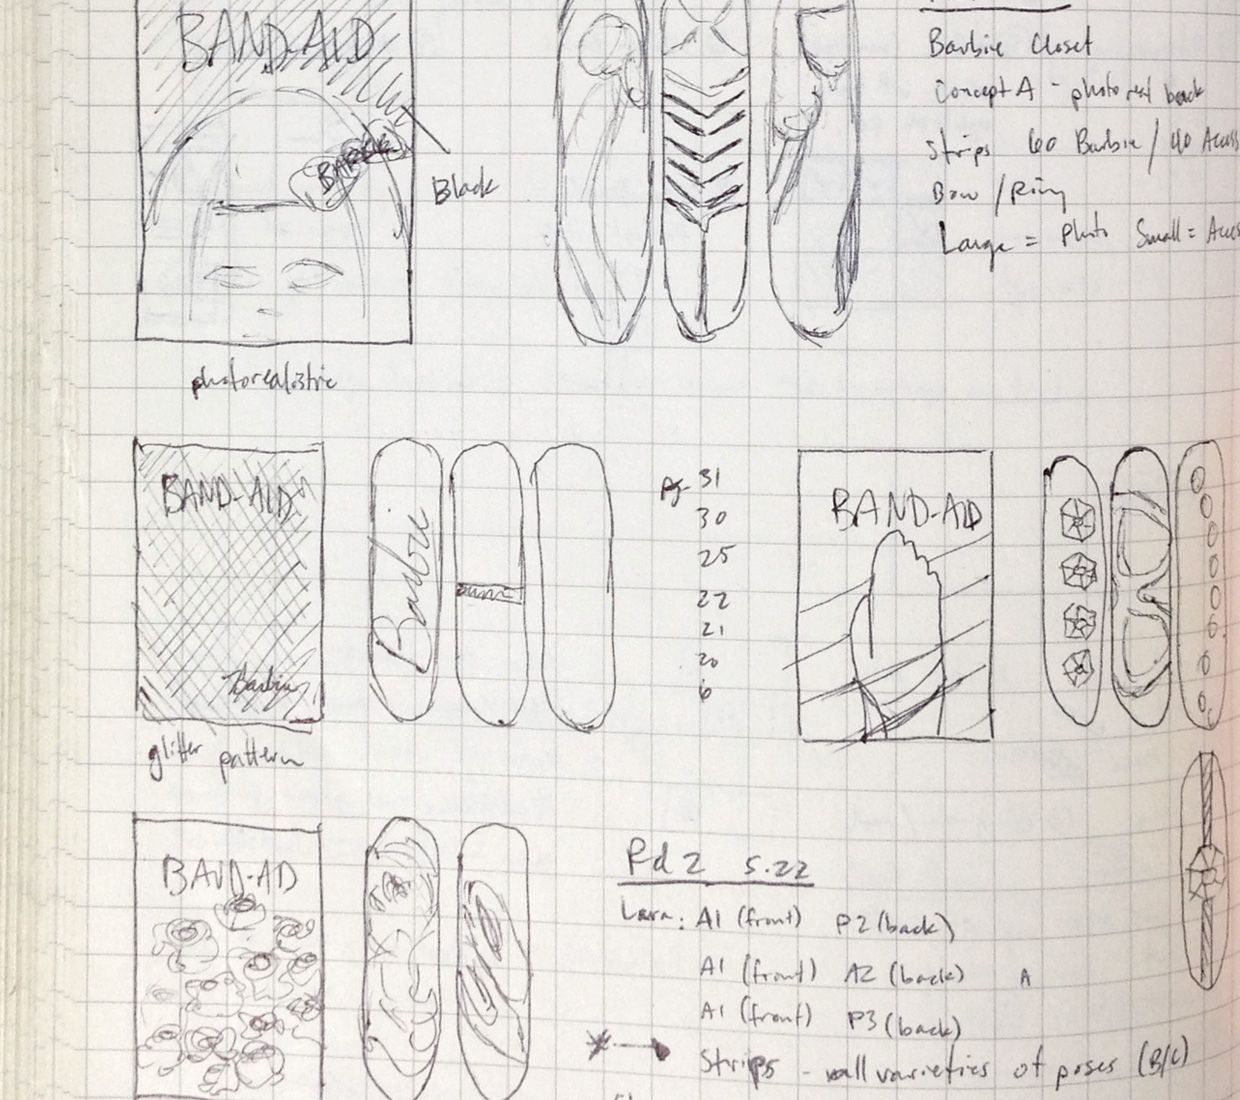 BAND-AID
BARBIE
Black
photorealistic
Barbie Closet
Concept A - photo real back
Strips 60 Barbie / 40 Access
Bow / Ring
Large = Photo Small = Access
BAND-AID
Barbie
glitter pattern
Barbie
Pg. 31
30
25
22
21
20
6
BAND-AID
BAND-AD
Rd 2 5.22
Lara: A1 (front) P2 (back)
A1 (front) A2 (back) A
A1 (front) P3 (back)
Strips - all varieties of poses (B/C)